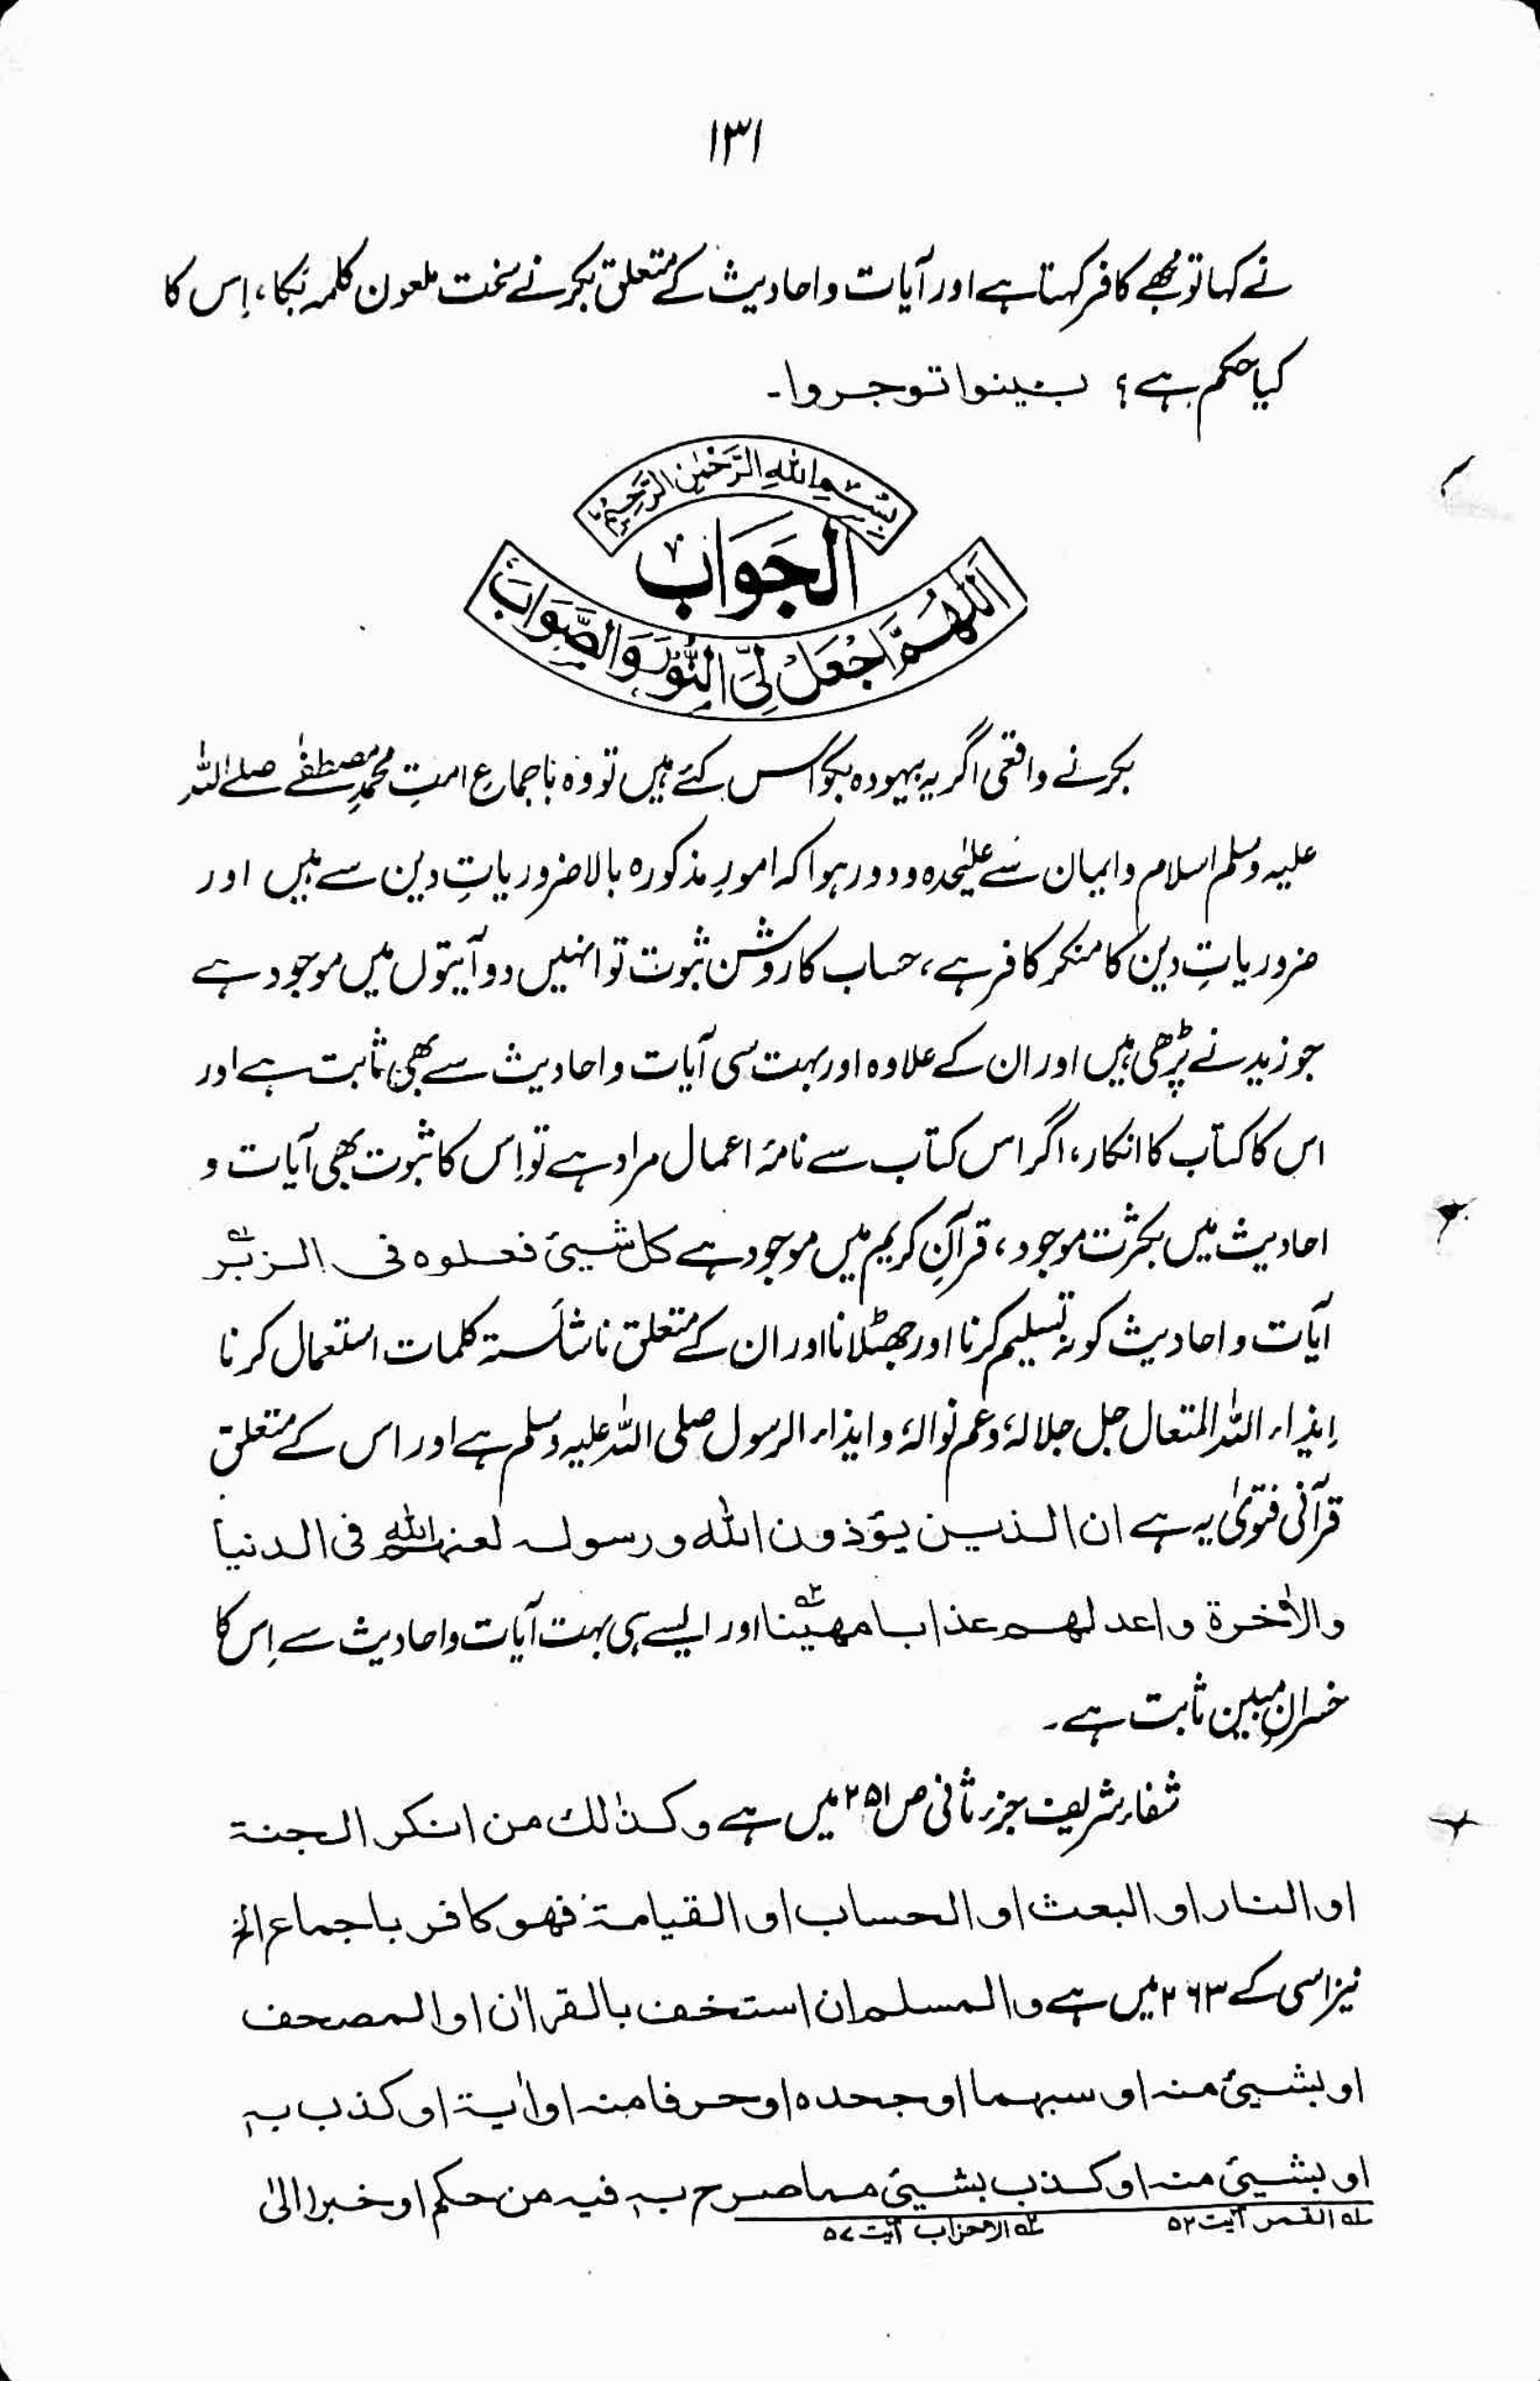 ۱۳۱
نے کہا تو مجھے کافر کہتا ہے اور آیات واحادیث کے متعلق بکر نے سخت ملعون کلمہ بکا، اِس کا
کیا حکم ہے؟ بینوا توجروا۔
بِسْمِ اللهِ الرَّحْمٰنِ الرَّحِيْمِ
الجَوَاب
اَللّٰهُمَّ اجْعَلْ لِّىَ النُّوْرَ وَالصَّوَابَ
بکر نے واقعی اگر یہ بیہودہ بکواس کئے ہیں تو وہ باجماعِ امتِ محمدِ مصطفٰے صلے اللہ
علیہ وسلم اسلام و ایمان سے علیٰحدہ و دور ہوا کہ امورِ مذکورہ بالا ضروریاتِ دین سے ہیں اور
ضروریاتِ دین کا منکر کافر ہے، حساب کا روشن ثبوت تو انہیں دو آیتوں میں موجود ہے
جو زید نے پڑھی ہیں اور ان کے علاوہ اور بہت سی آیات و احادیث سے بھی ثابت ہے اور
اس کا کتاب کا انکار، اگر اس کتاب سے نامۂ اعمال مراد ہے تو اِس کا ثبوت بھی آیات و
احادیث میں بکثرت موجود، قرآنِ کریم میں موجود ہے کل شیئ فعلوہ فی الزبر ۱ہ
آیات و احادیث کو نہ تسلیم کرنا اور جھٹلانا اور ان کے متعلق ناشائستہ کلمات استعمال کرنا
اِیذاء اللہ المتعال جل جلالہٗ وعم نوالہٗ و ایذاء الرسول صلی اللہ علیہ وسلم ہے اور اس کے متعلق
قرآنی فتویٰ یہ ہے ان الذین یؤذون اللہ ورسولہ لعنہم اللہ فی الدنیا
والاٰخرۃ واعد لھم عذابا مھینا ۲ہ اور ایسے ہی بہت آیات و احادیث سے اِس کا
خسرانِ مبین ثابت ہے۔
شفاء شریف جزء ثانی ص ۲۵۱ میں ہے وکذٰلک من انکر الجنۃ
او النار او البعث او الحساب او القیامۃ فھو کافر باجماع الخ
نیز اسی کے ۲۶۳ میں ہے والمسلم ان استخف بالقراٰن او المصحف
او بشیئ منہ او سبھما او جحدہ او حرفا منہ او اٰیۃ او کذب بہ
او بشیئ منہ او کذب بشیئ مما صرح بہ فیہ من حکم او خبر الیٰ
۱ہ القمر آیت ۵۲ ۲ہ الاحزاب آیت ۵۷